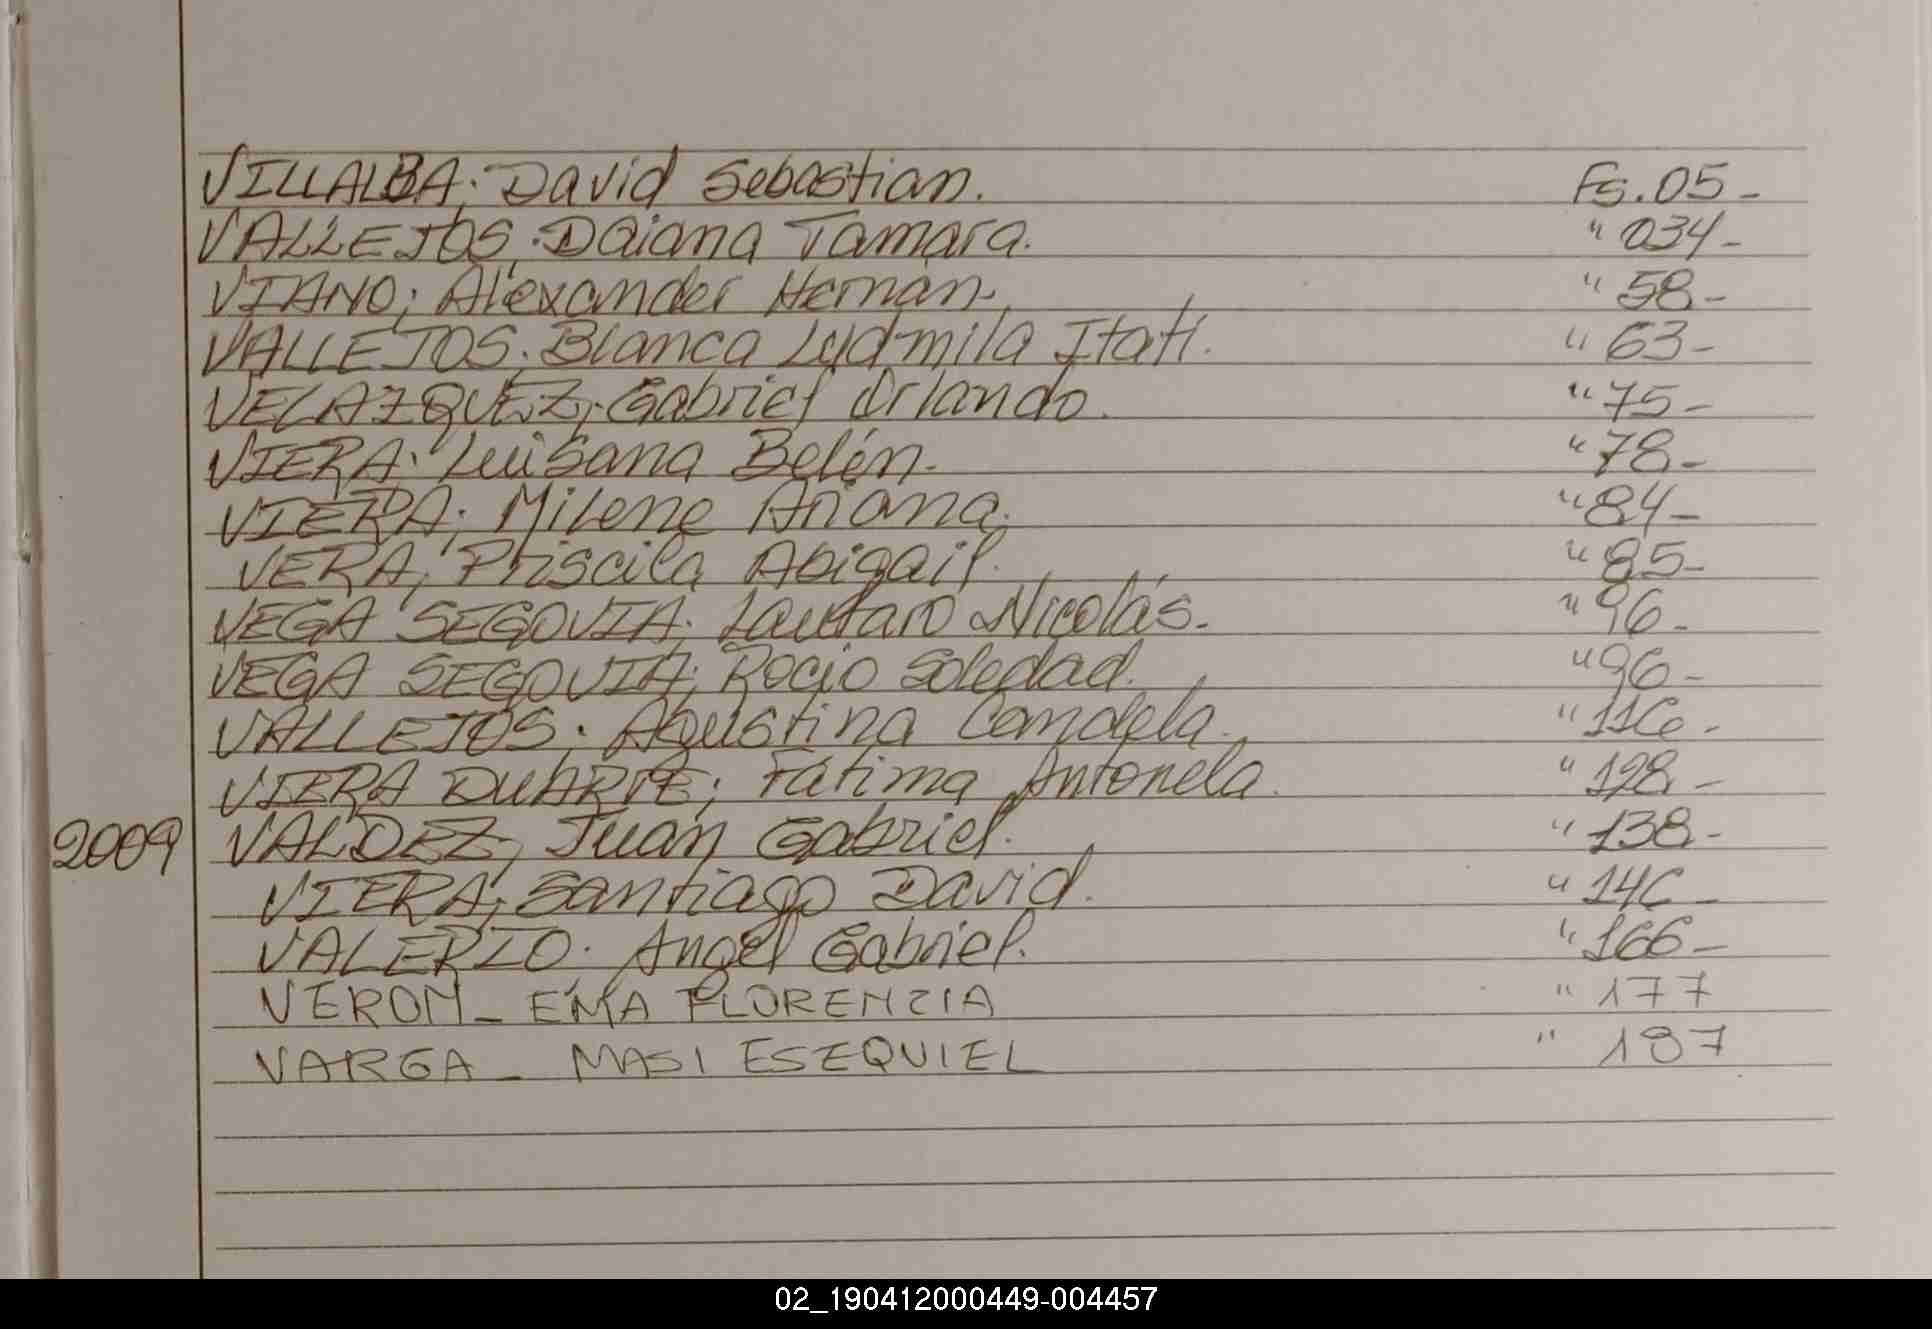 VILLALBA; David Sebastian. Fs. 05-
VALLEJOS; Daiana Tamara. " 034-
VIANO; Alexander Hernan. " 58-
VALLEJOS; Blanca Ludmila Itatí. " 63-
VELAZQUEZ; Gabriel Orlando. " 75-
VIERA; Luisana Belén. " 78-
VIERA; Milene Ariana. " 84-
VERA, Priscila Abigail. " 85-
VEGA SEGOVIA; Lautaro Nicolás. " 96-
VEGA SEGOVIA; Rocio Soledad. " 96-
VALLEJOS; Agustina Candela. " 116-
VIERA DUARTE; Fátima Antonela. " 128-
2009 VALDEZ, Juan Gabriel. " 138-
VIERA; Santiago David. " 146-
VALERIO; Angel Gabriel. " 166-
VERON_ EMA FLORENCIA " 177
VARGA_ MASI ESEQUIEL " 187
02_190412000449-004457